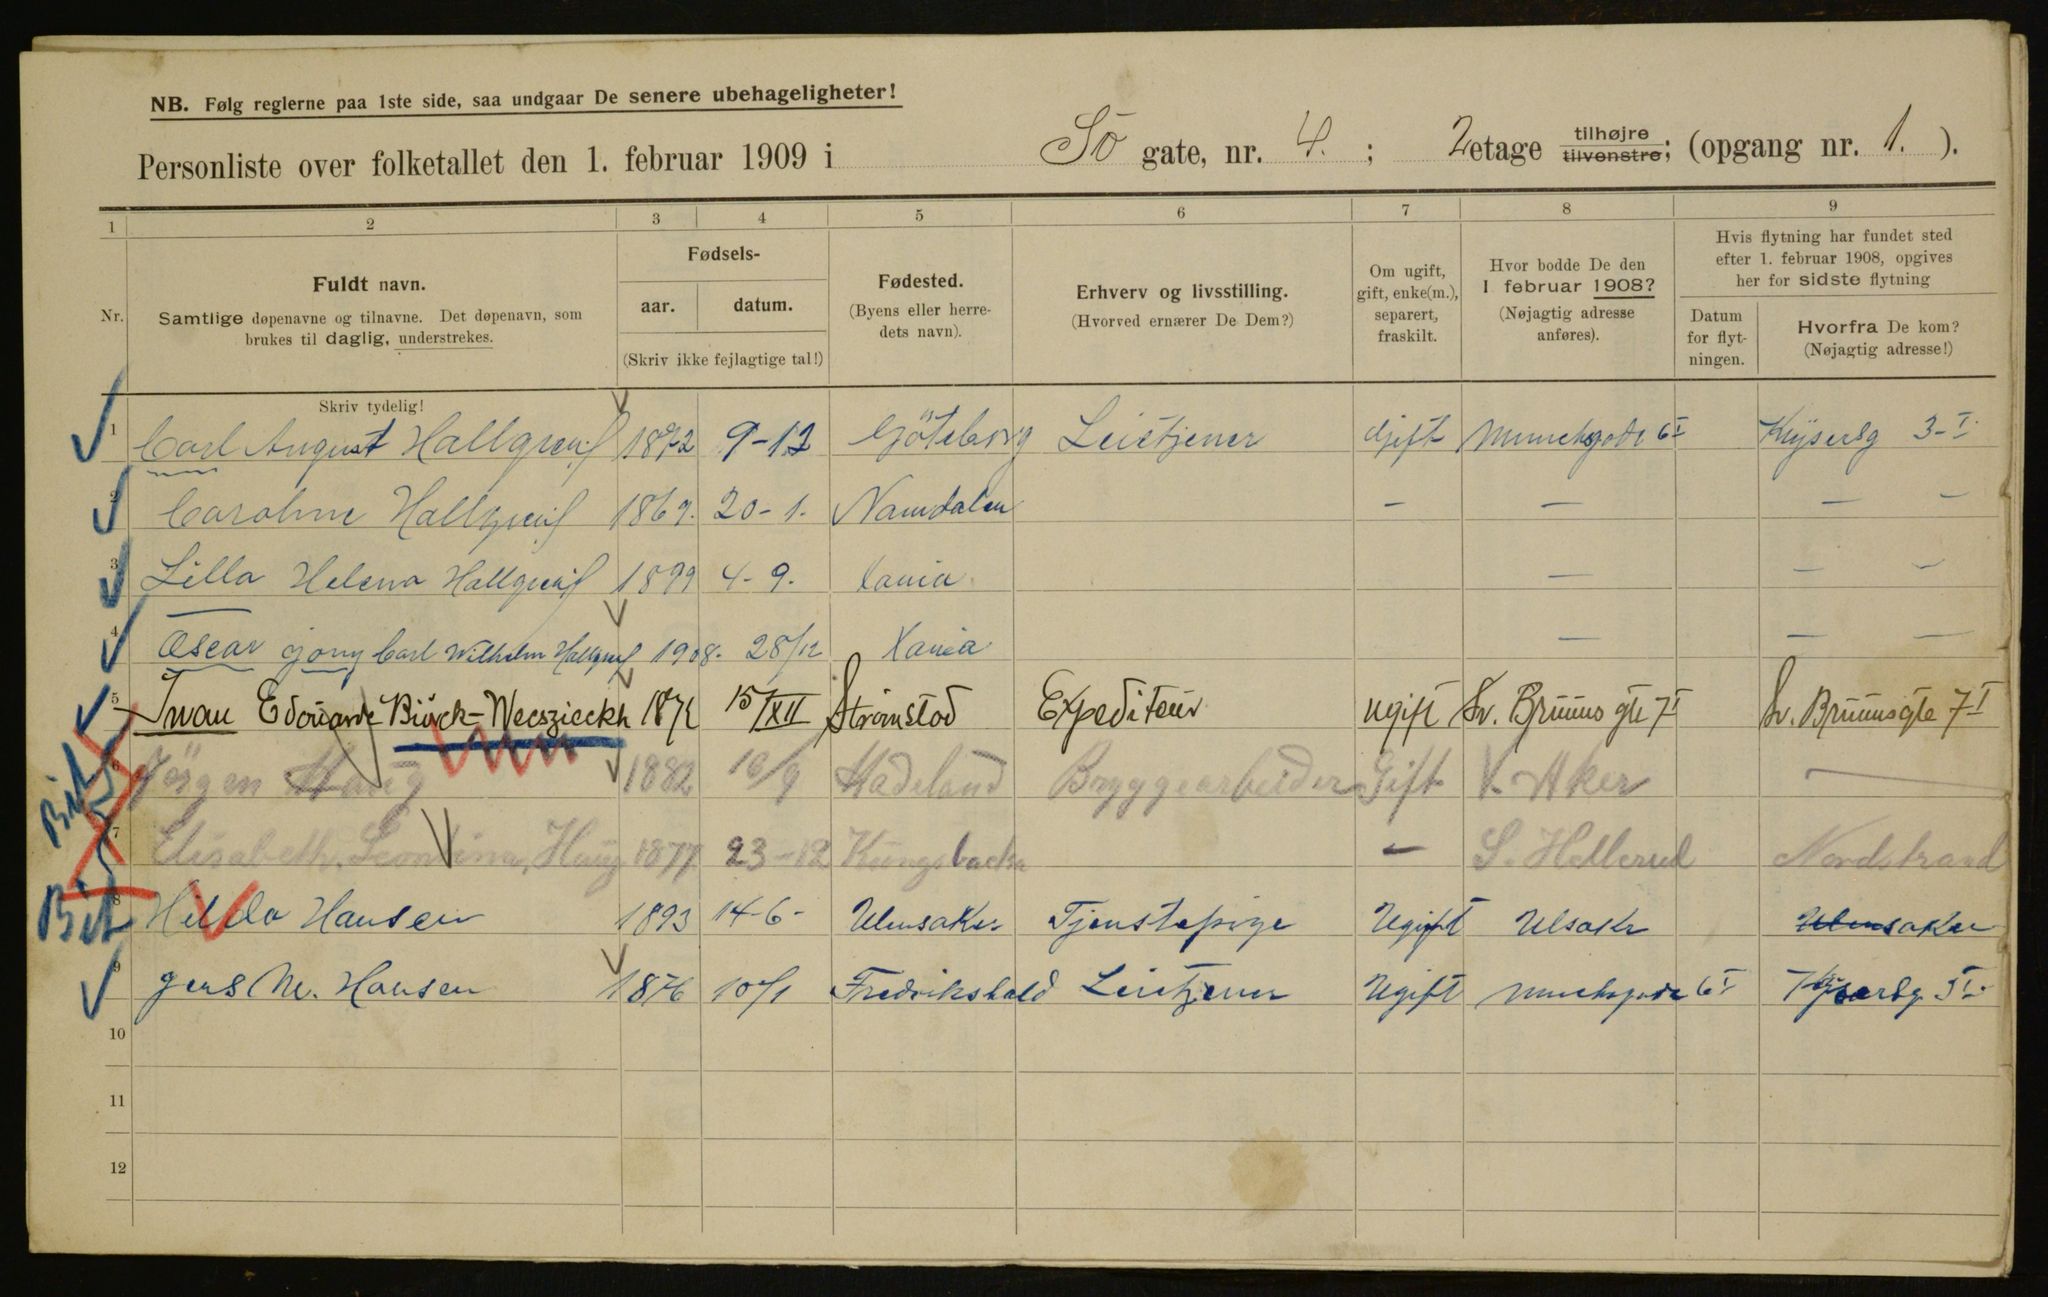 NB. Følg reglerne paa 1ste side, saa undgaar De senere ubehageligheter!
Personliste over folketallet den 1. februar 1909 i Sö gate, nr. 4. ; 2 etage tilhøjre tilvenstre; (opgang nr. 1. ).
1 2 3 4 5 6 7 8 9
Nr.
Fuldt navn.
Samtlige døpenavne og tilnavne. Det døpenavn, som
brukes til daglig, understrekes.
Skriv tydelig!
Fødsels-
aar. datum.
(Skriv ikke fejlagtige tal!)
Fødested.
(Byens eller herre-
dets navn).
Erhverv og livsstilling.
(Hvorved ernærer De Dem?)
Om ugift,
gift, enke(m.),
separert,
fraskilt.
Hvor bodde De den
1 februar 1908?
(Nøjagtig adresse
anføres).
Hvis flytning har fundet sted
efter 1. februar 1908, opgives
her for sidste flytning
Datum
for flyt-
ningen.
Hvorfra De kom?
(Nøjagtig adresse!)
1 Carl August Hallgren 1872 9-12 Göteborg Leietjener Gift Munchsgade 6 I Keysersg 3-I
2 Caroline Hallgren 1869. 20-1. Namdalen — — — —
3 Lilla Helena Hallgren 1899 4-9. Xania — — —
4 Oscar Carl Wilhelm Hallgren 1908. 28/12 Xania — — —
5 Iwan Edouarde 1871 15/XII Strömstad Expediteur ugift Sv. Bruuns gte 7 I Sv. Bruunsgte 7 I
6 Jörgen Haug 1882 10/9 Hadeland Bryggearbeider Gift V. Aker —
7 Elisabeth Leontina, Haug 1877 23-12 Kungsbacka — S. Hellerud Nordstrand
8 Hilda Hansen 1893 14-6- Ulensaker Tjenstepige Ugift Ulsaker Ulensaker
9 Jens M. Hansen 1876 10/1 Fredrikshald Leietjener Ugift Munchsgade 6 I Keysersg
10
11
12
Bit
Bit